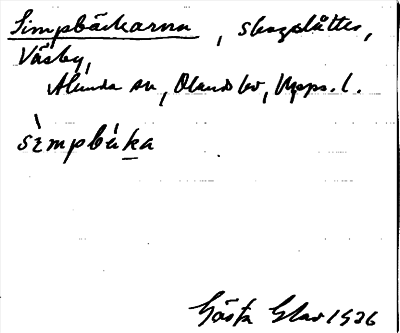 Simpbäckarna, skogslåtter,
Väsby,
Alunda sn, Olands hd, Upps. l.
sìmpbä́ka
Gösta Glav 1926